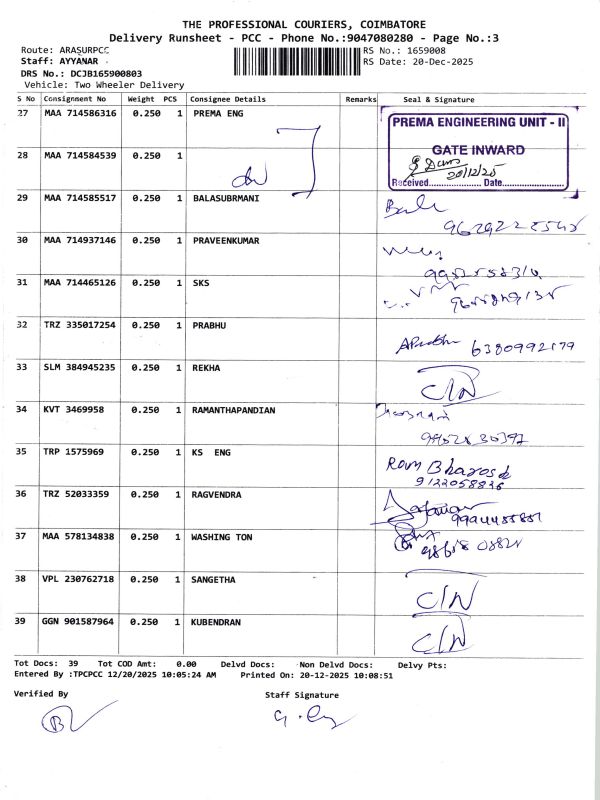 THE PROFESSIONAL COURIERS, COIMBATORE
Delivery Runsheet - PCC - Phone No.:9047080280 - Page No.:3
Route: ARASURPCC
RS No.: 1659008
Staff: AYYANAR
RS Date: 20-Dec-2025
DRS No.: DCJB165900803
Vehicle: Two Wheeler Delivery
S No Consignment No Weight PCS Consignee Details Remarks Seal & Signature
27 MAA 714586316 0.250 1 PREMA ENG
PREMA ENGINEERING UNIT - II
GATE INWARD
20/12/25
Received............... Date...............
28 MAA 714584539 0.250 1
29 MAA 714585517 0.250 1 BALASUBRMANI
30 MAA 714937146 0.250 1 PRAVEENKUMAR
31 MAA 714465126 0.250 1 SKS
32 TRZ 335017254 0.250 1 PRABHU
6380992179
33 SLM 384945235 0.250 1 REKHA
C/N
34 KVT 3469958 0.250 1 RAMANTHAPANDIAN
35 TRP 1575969 0.250 1 KS ENG
Ram Bharosh
9122058836
36 TRZ 52033359 0.250 1 RAGVENDRA
37 MAA 578134838 0.250 1 WASHING TON
38 VPL 230762718 0.250 1 SANGETHA
C/N
39 GGN 901587964 0.250 1 KUBENDRAN
C/N
Tot Docs: 39 Tot COD Amt: 0.00 Delvd Docs: Non Delvd Docs: Delvy Pts:
Entered By :TPCPCC 12/20/2025 10:05:24 AM Printed On: 20-12-2025 10:08:51
Verified By Staff Signature